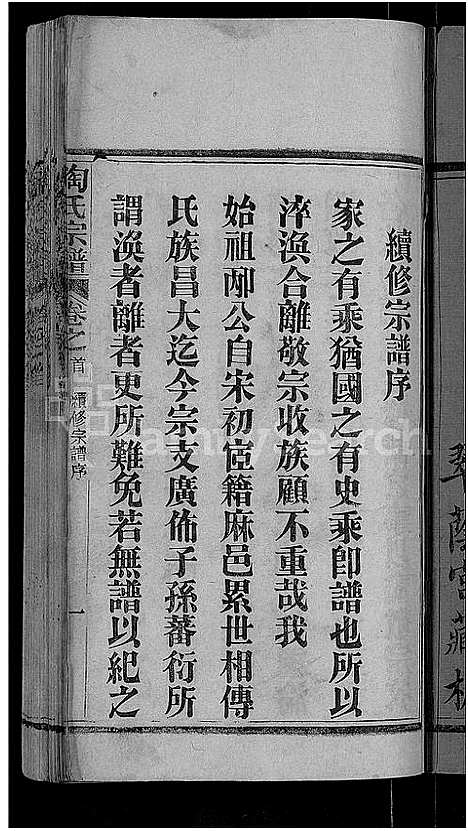 續修宗譜序
家之有乘猶國之有史乘卽譜也所以
淬渙合離敬宗收族顧不重哉我
始祖邴公自宋初宦籍麻邑累世相傳
氏族昌大迄今宗支廣佈子孫蕃衍所
謂渙者離者更所難免若無譜以紀之
陶氏宗譜 卷之首 續修宗譜序 一